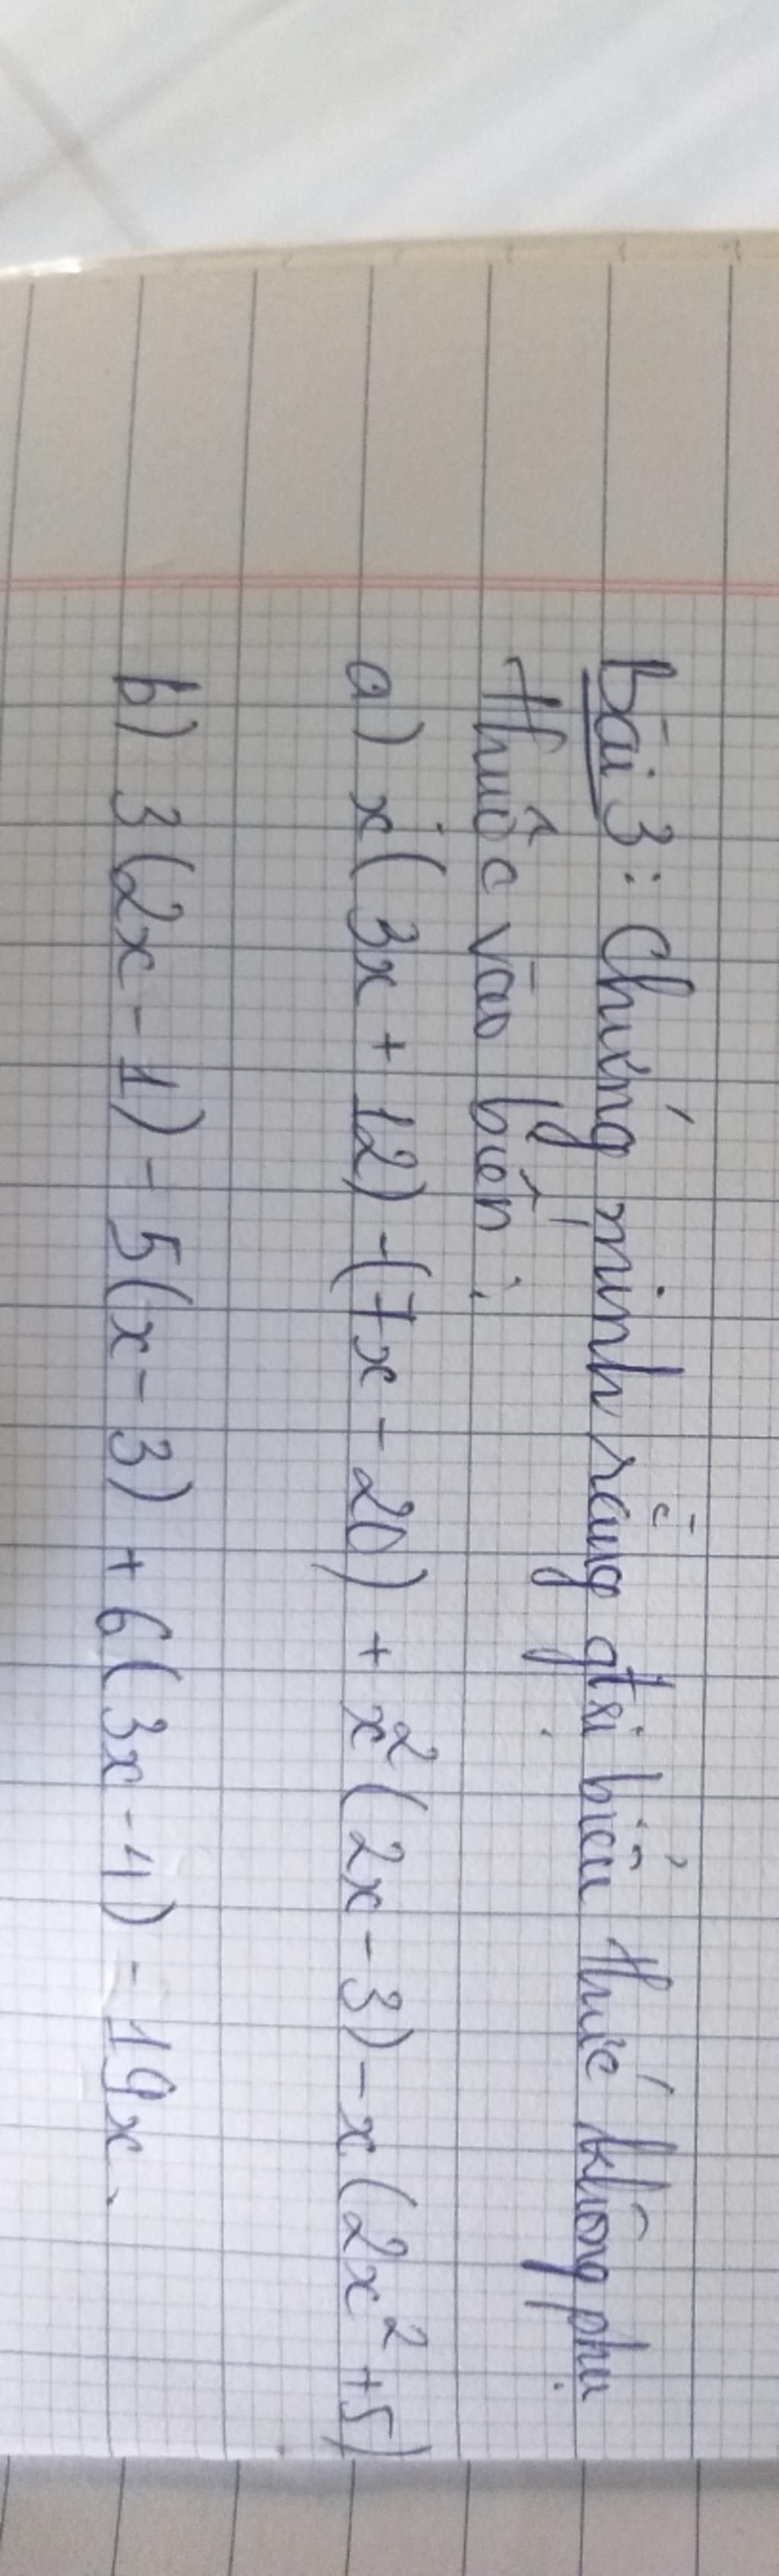 Bài 3: Chứng minh rằng gtri biểu thức không phụ
thuộc vào biến:
a) x(3x + 12) - (7x - 20) + x²(2x - 3) - x(2x² + 5)
b) 3(2x - 1) - 5(x - 3) + 6(3x - 4) - 19x.